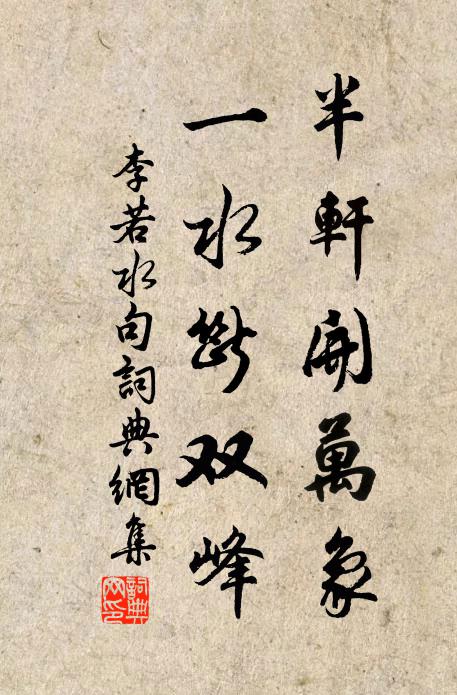 半軒開萬象
一水斷双峰
李若水句詞典網集
詞典网印